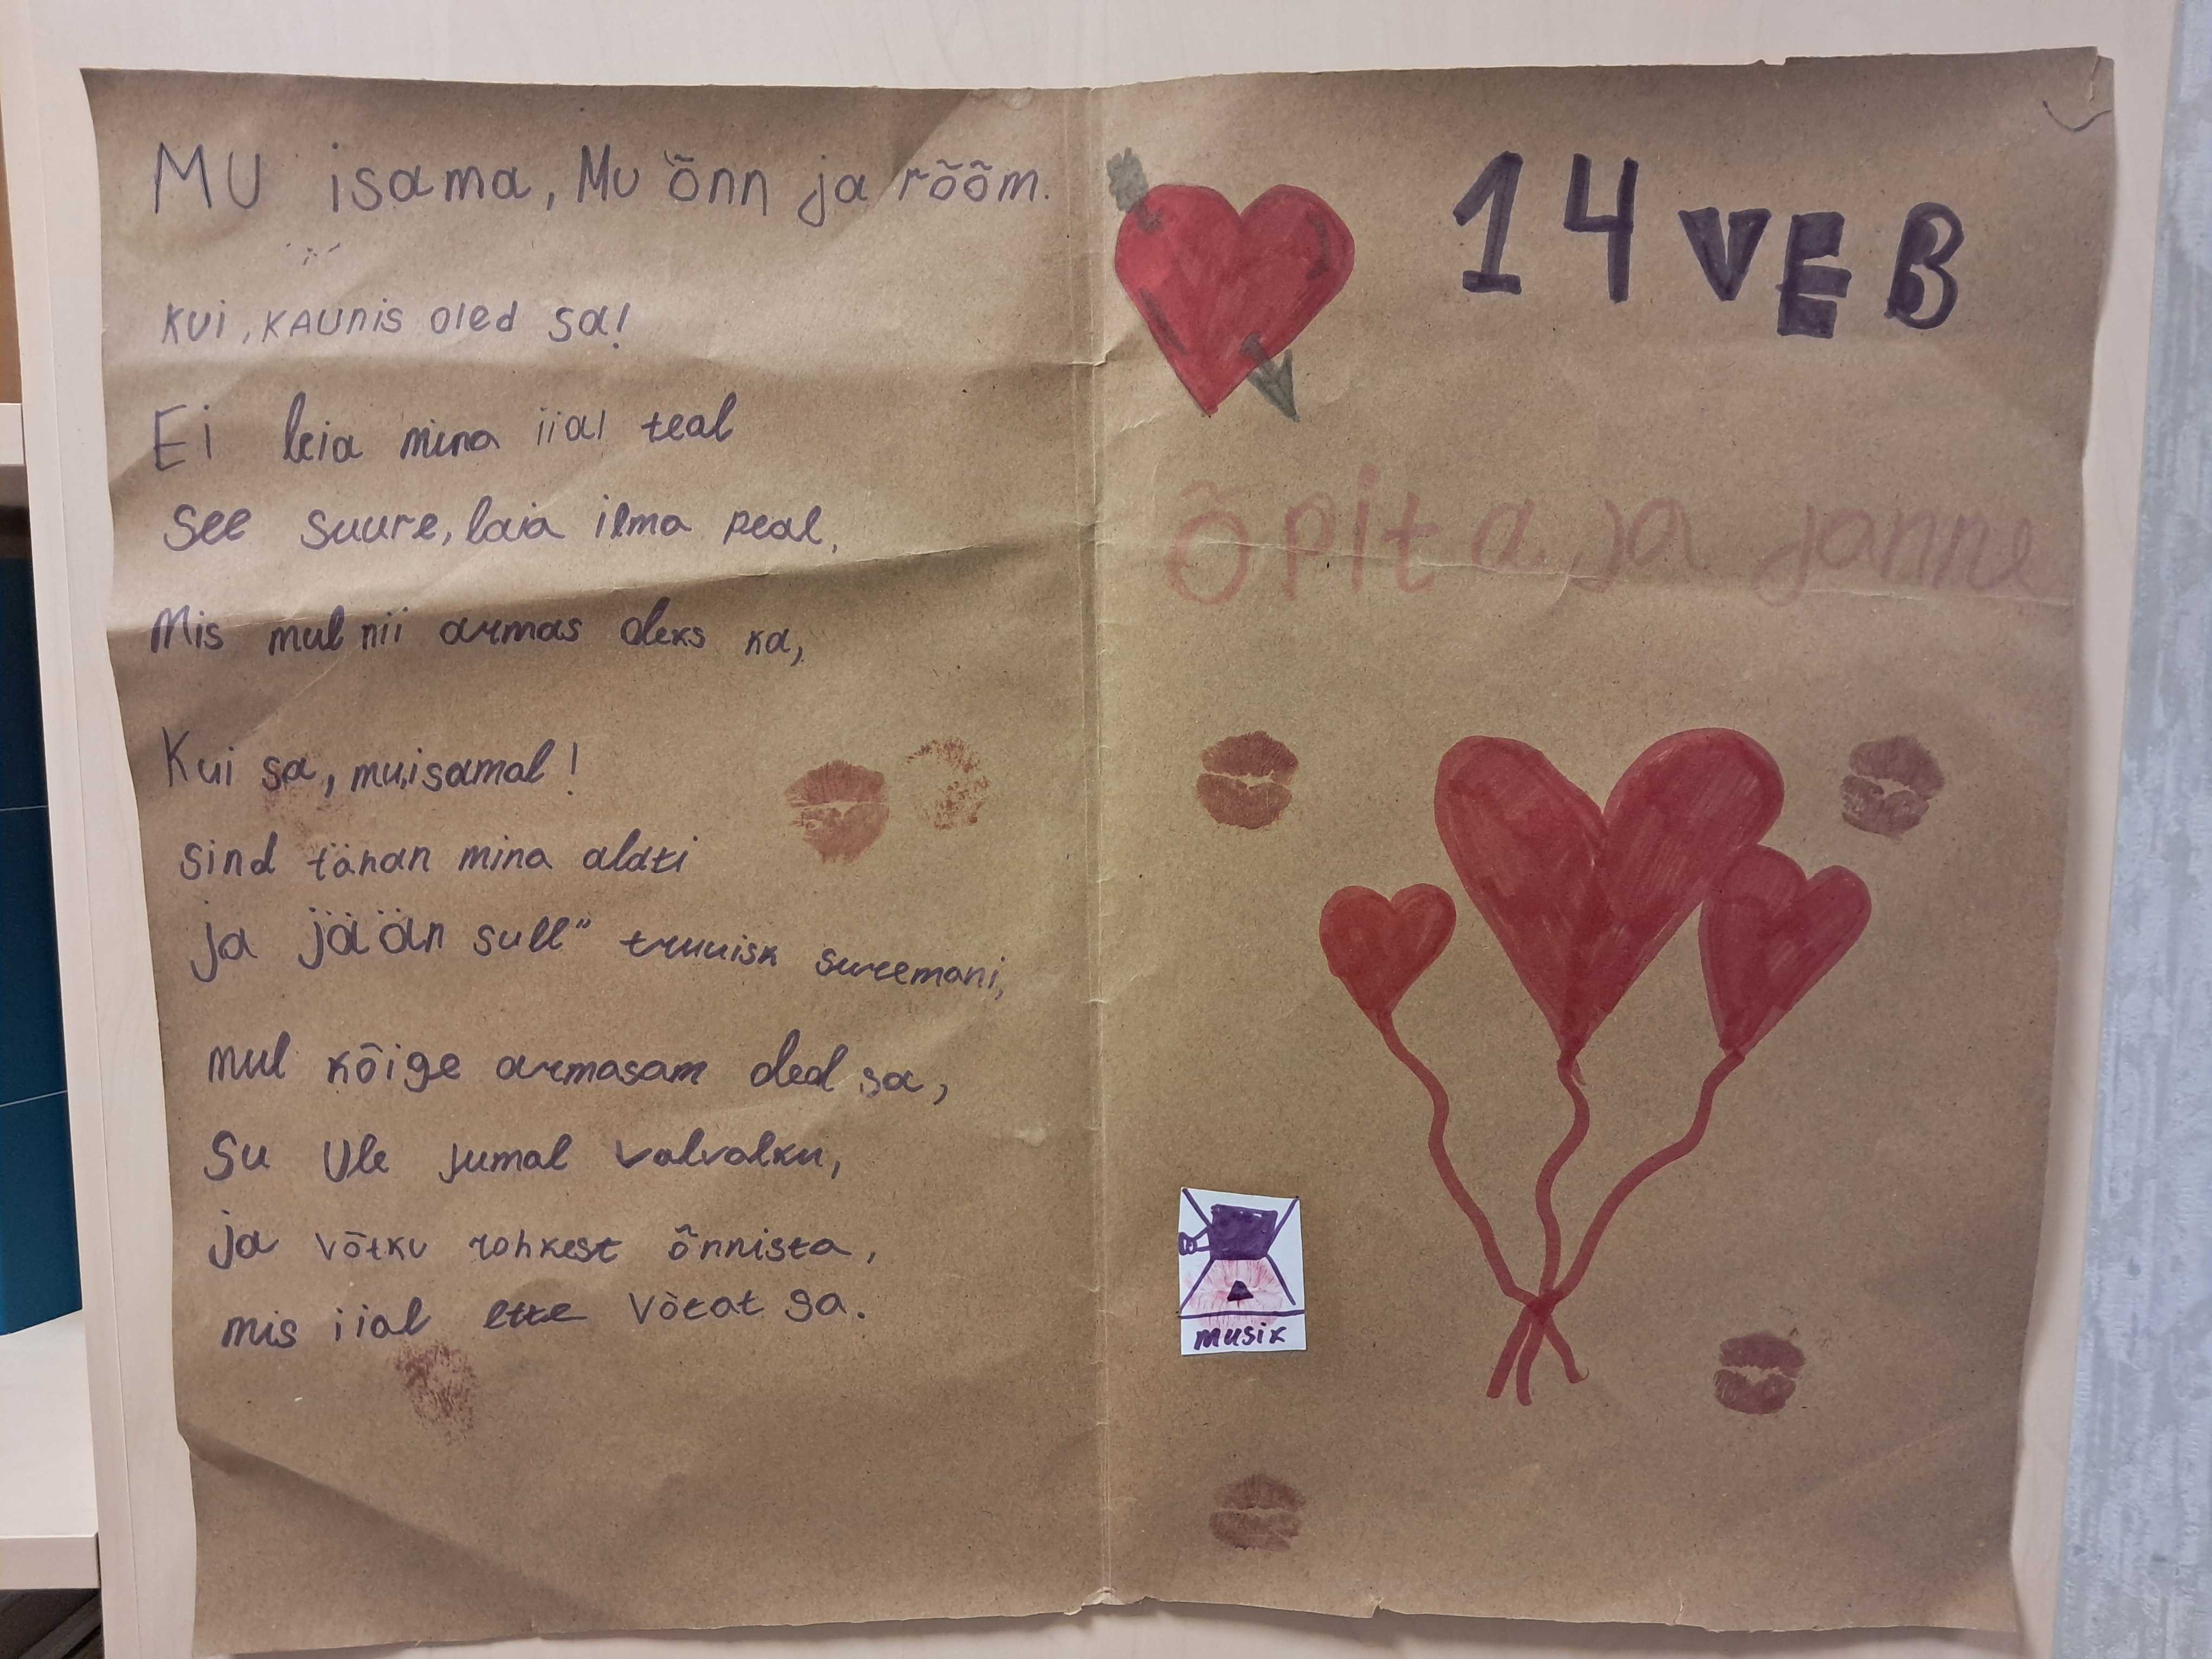 MU isama, Mu õnn ja rõõm.
kui, kaunis oled sa!
Ei leia mina iial teal
See suure, laia ilma peal,
Mis mul nii armas oleks ka,
Kui sa, mu, isamal!
Sind tänan mina alati
ja jään sull" truuisk sureemani,
mul kõige armasam oled sa,
Su Ule jumal valvalku,
ja võtku rohkest õnnista,
mis iial ette võtat sa.
14 VEB
Õpitaja janne
musik